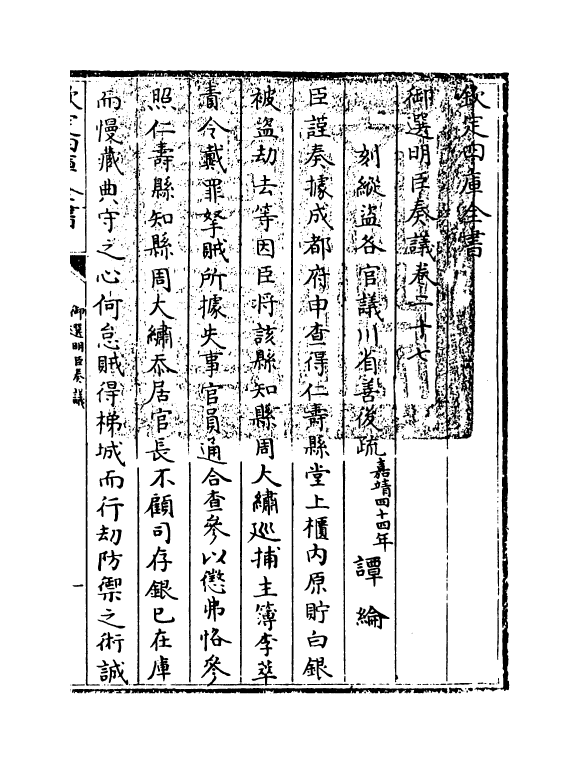 欽定四庫全書
御選明臣奏議卷二十七
刻縱盜各官議川省善後疏 嘉靖四十四年 譚綸
臣謹奏據成都府申查得仁壽縣堂上櫃内原貯白銀
被盜劫去等因臣將該縣知縣周大繡巡捕主簿李萃
責令戴罪拏賊所據失事官員通合查參以懲弗恪參
照仁壽縣知縣周大繡忝居官長不顧司存銀已在庫
而慢藏典守之心何怠賊得梯城而行刼防禦之術誠
欽定四庫全書
御選明臣奏議
一